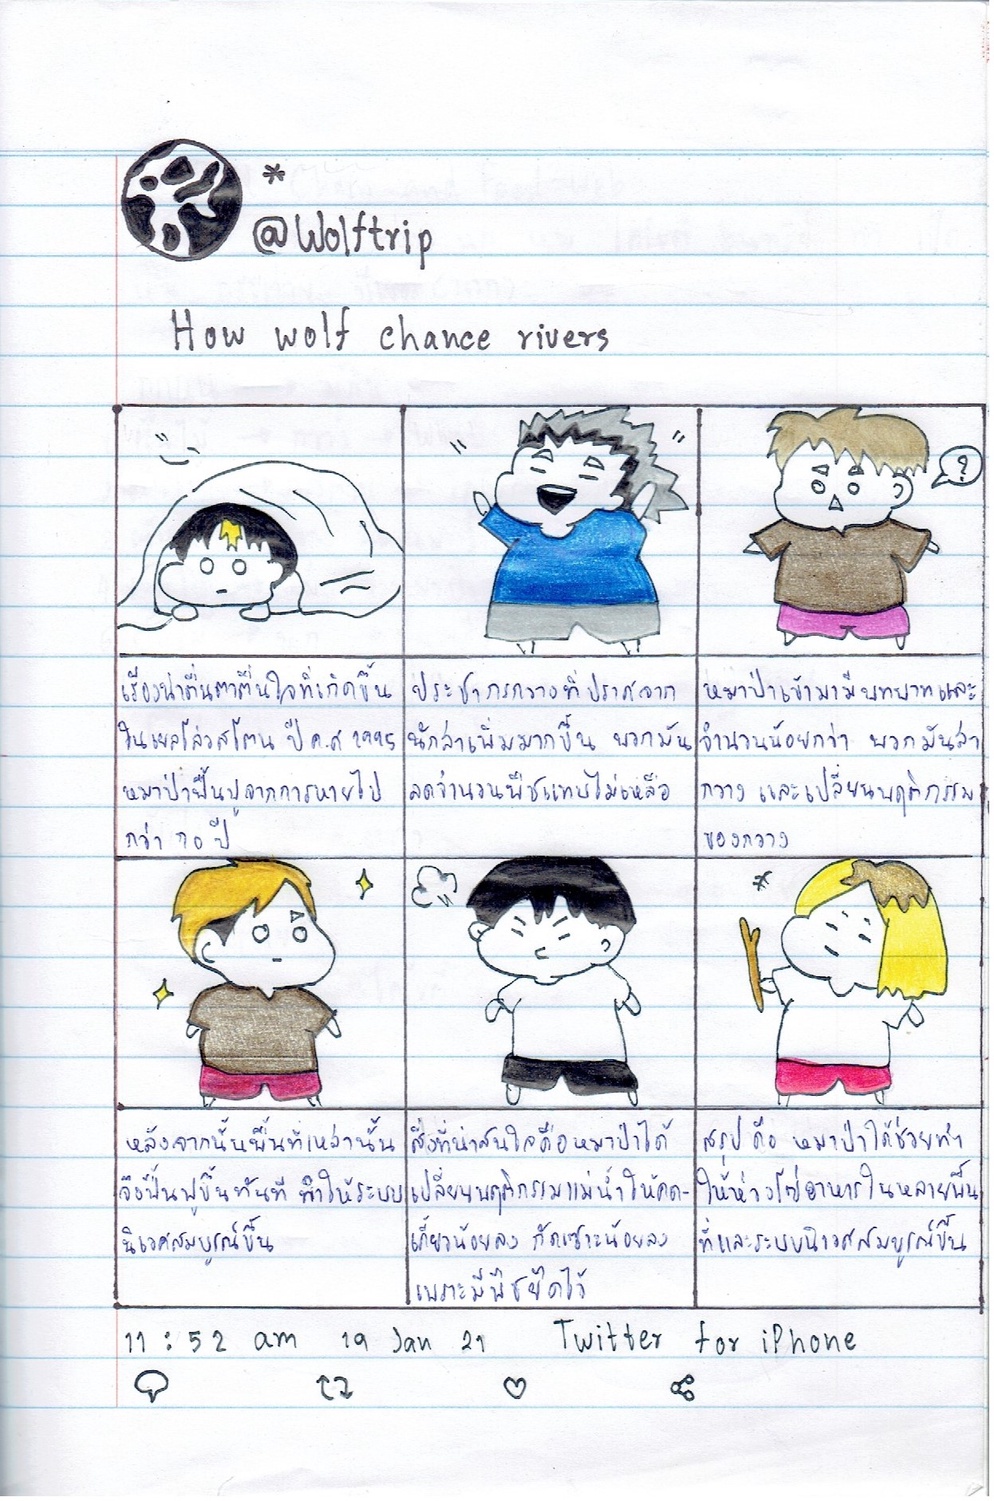 *
@Wolftrip
How wolf chance rivers
?
เรื่องน่าตื่นตาตื่นใจที่เกิดขึ้น
ในเยลโล่วสโตน ปี ค.ศ 1995
หมาป่าฟื้นฟูจากการหายไป
กว่า 70 ปี
ประชากรกวางที่ปราศจาก
นักล่าเพิ่มมากขึ้น พวกมัน
ลดจำนวนพืชแทบไม่เหลือ
หมาป่าเข้ามามีบทบาทและ
จำนวนน้อยกว่า พวกมันล่า
กวาง และเปลี่ยนพฤติกรรม
ของกวาง
หลังจากนั้นพื้นที่เหล่านั้น
จึงฟื้นฟูขึ้นทันที ทำให้ระบบ
นิเวศสมบูรณ์ขึ้น
สิ่งที่น่าสนใจคือหมาป่าได้
เปลี่ยนพฤติกรรมแม่น้ำให้คด-
เคี้ยวน้อยลง กัดเซาะน้อยลง
เพราะมีพืชยึดไว้
สรุป คือ หมาป่าได้ช่วยทำ
ให้ห่วงโซ่อาหารในหลายพื้น
ที่และระบบนิเวศสมบูรณ์ขึ้น
11:52 am 19 Jan 21 Twitter for iPhone